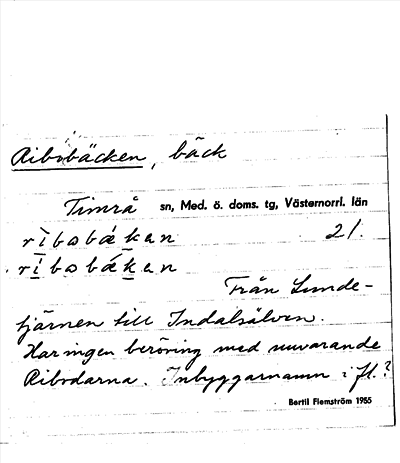 Ribobäcken, bäck
Timrå sn, Med. ö. doms. tg, Västernorrl. län
rìbobǽkan 21.
rìbobǽkan
Från Sunde-
tjärnen till Indalsälven.
Har ingen beröring med nuvarande
Ribodarna. Inbyggarnamn i fl.?
Bertil Flemström 1955